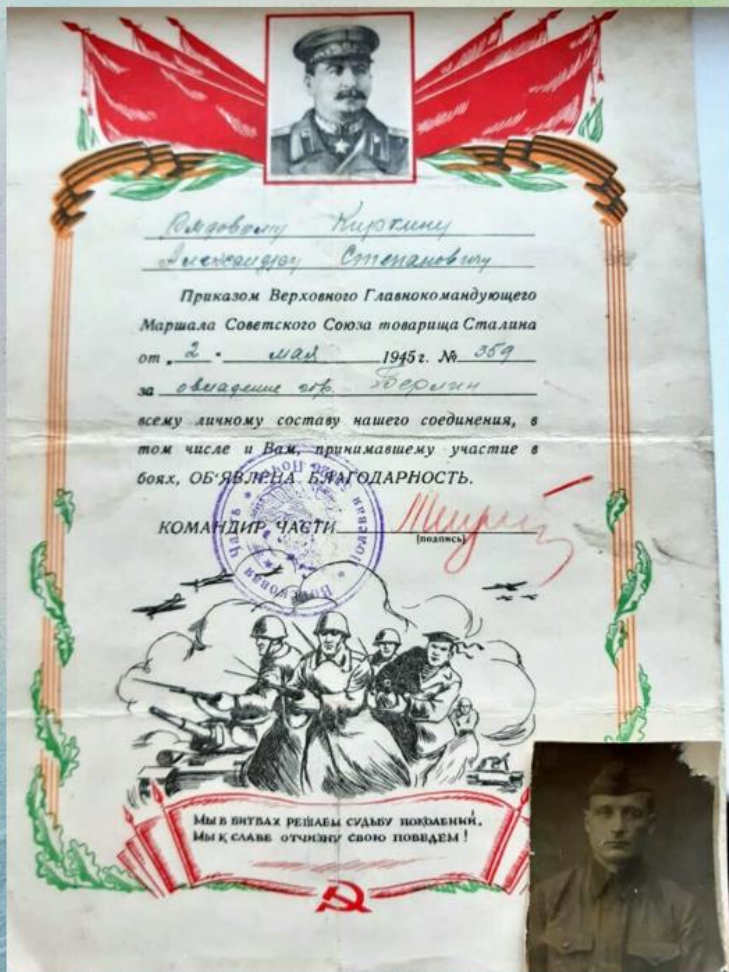 Рядовому Киркину
Александру Степановичу
Приказом Верховного Главнокомандующего
Маршала Советского Союза товарища Сталина
от „2" мая 1945 г. № 359
за овладение гор. Берлин
всему личному составу нашего соединения, в
том числе и Вам, принимавшему участие в
боях, ОБ'ЯВЛЕНА БЛАГОДАРНОСТЬ.
КОМАНДИР ЧАСТИ
(подпись)
Войсковая Часть Полевая Почта
МЫ В БИТВАХ РЕШАЕМ СУДЬБУ ПОКОЛЕНИЙ,
МЫ К СЛАВЕ ОТЧИЗНУ СВОЮ ПОВЕДЕМ!